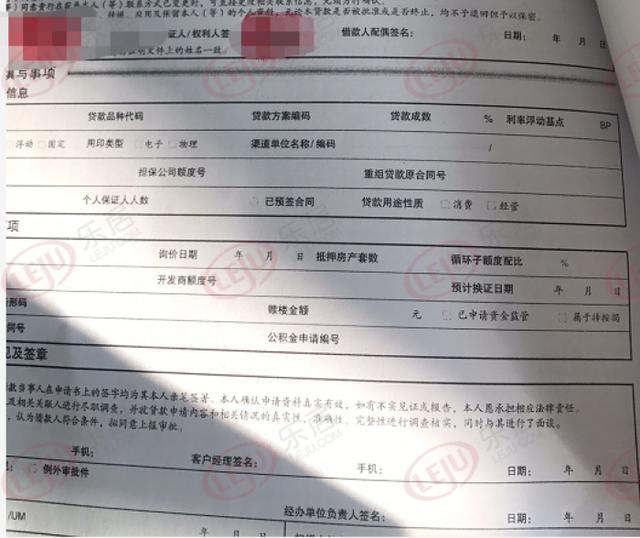 同意贵行在获悉本人（等）联系方式已变更时，可直接更改相关联系信息，无须另行确认。
应用及保留本人（等）的个人资料，无论本贷款是否被批准或是否终止，均不予退回但予以保密。
证人/权利人签 借款人配偶签名： 日期： 年 月
证明文件上的姓名一致。
填写事项
信息
贷款品种代码 贷款方案编码 贷款成数 % 利率浮动基点 BP
浮动 □固定 用印类型 □电子 □物理 渠道单位名称/编码 /
担保公司额度号 重组贷款原合同号
个人保证人人数 □已预签合同 贷款用途性质 □消费 □经营
项
询价日期 年 月 日 抵押房产套数 循环子额度配比 %
开发商额度号 预计换证日期 年 月 日
形码 赎楼金额 元 □已申请资金监管 □属于转按揭
同号 公积金申请编号
见及签章
款当事人在申请书上的签字均为其本人亲笔签署。本人确认申请资料真实有效，如有不实见证或报告，本人愿承担相应法律责任。
及相关关联人进行尽职调查，并就贷款申请内容和相关情况的真实性、准确性、完整性进行调查核实，同时与其进行了面谈。
，认为借款人符合条件，拟同意上报审批。
手机： 客户经理签名： 手机： 日期： 年 月 日
□例外审批件
经办单位负责人签名： 日期： 年 月 日
/UM 年 月 日
乐居
LEJU
LEJU.COM